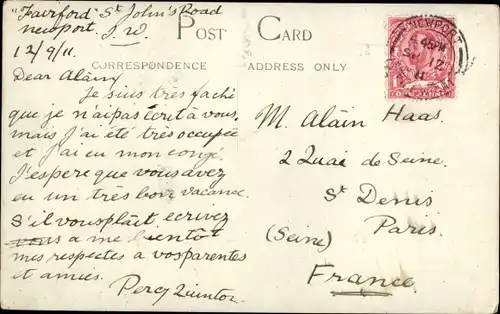 "Fairford" St John's Road
Newport. I.W.
12/9/11.
POST CARD
CORRESPONDENCE
ADDRESS ONLY
NEWPORT
Dear Alain,
Je suis très faché
que je n'ai pas écrit à vous,
mais j'ai été très occupée
et j'ai eu mon congé.
J'espere que vous avez
eu un très bon vacance.
S'il vous plâit ecrivez
a me bientôt
mes respectes a vos parentes
et amies.
Percy Quinton
M. Alain Haas.
2 Quai de Seine.
St Denis
Paris.
(Seine)
France.